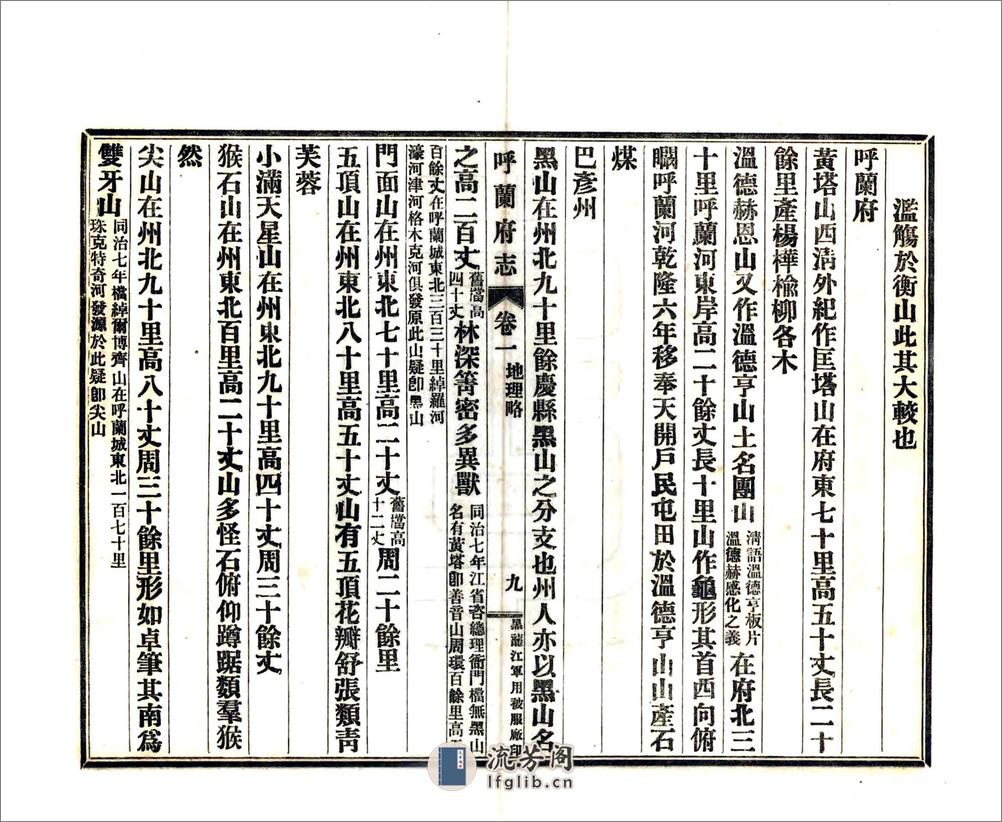 濫觴於衡山此其大較也
呼蘭府
黃塔山西淸外紀作匡塔山在府東七十里高五十丈長二十
餘里產楊樺楡柳各木
溫德赫恩山又作溫德亨山土名團山
淸語溫德亨板片
溫德赫感化之義
在府北三
十里呼蘭河東岸高二十餘丈長十里山作龜形其首西向俯
瞰呼蘭河乾隆六年移奉天開戶民屯田於溫德亨山山產石
煤
巴彥州
黑山在州北九十里餘慶縣黑山之分支也州人亦以黑山名
呼蘭府志
卷一
地理略
九
黑龍江軍用被服廠印
之高二百丈
舊檔高
四十丈
林深箐密多異獸
同治七年江省咨總理衙門檔無黑山
名有黃塔卽善晉山周環百餘里高
百餘丈在呼蘭城東北三百三十里綽羅河
濠河津河格木克河俱發原此山疑卽黑山
門面山在州東北七十里高二十丈
舊檔高
十二丈
周二十餘里
五頂山在州東北八十里高五十丈山有五頂花瓣舒張類靑
芙蓉
小滿天星山在州東北九十里高四十丈周三十餘丈
猴石山在州東北百里高二十丈山多怪石俯仰蹲踞類羣猴
然
尖山在州北九十里高八十丈周三十餘里形如卓筆其南爲
雙牙山
同治七年檔綽爾博齊山在呼蘭城東北一百七十里
珠克特奇河發源於此疑卽尖山
流芳阁
lfglib.cn